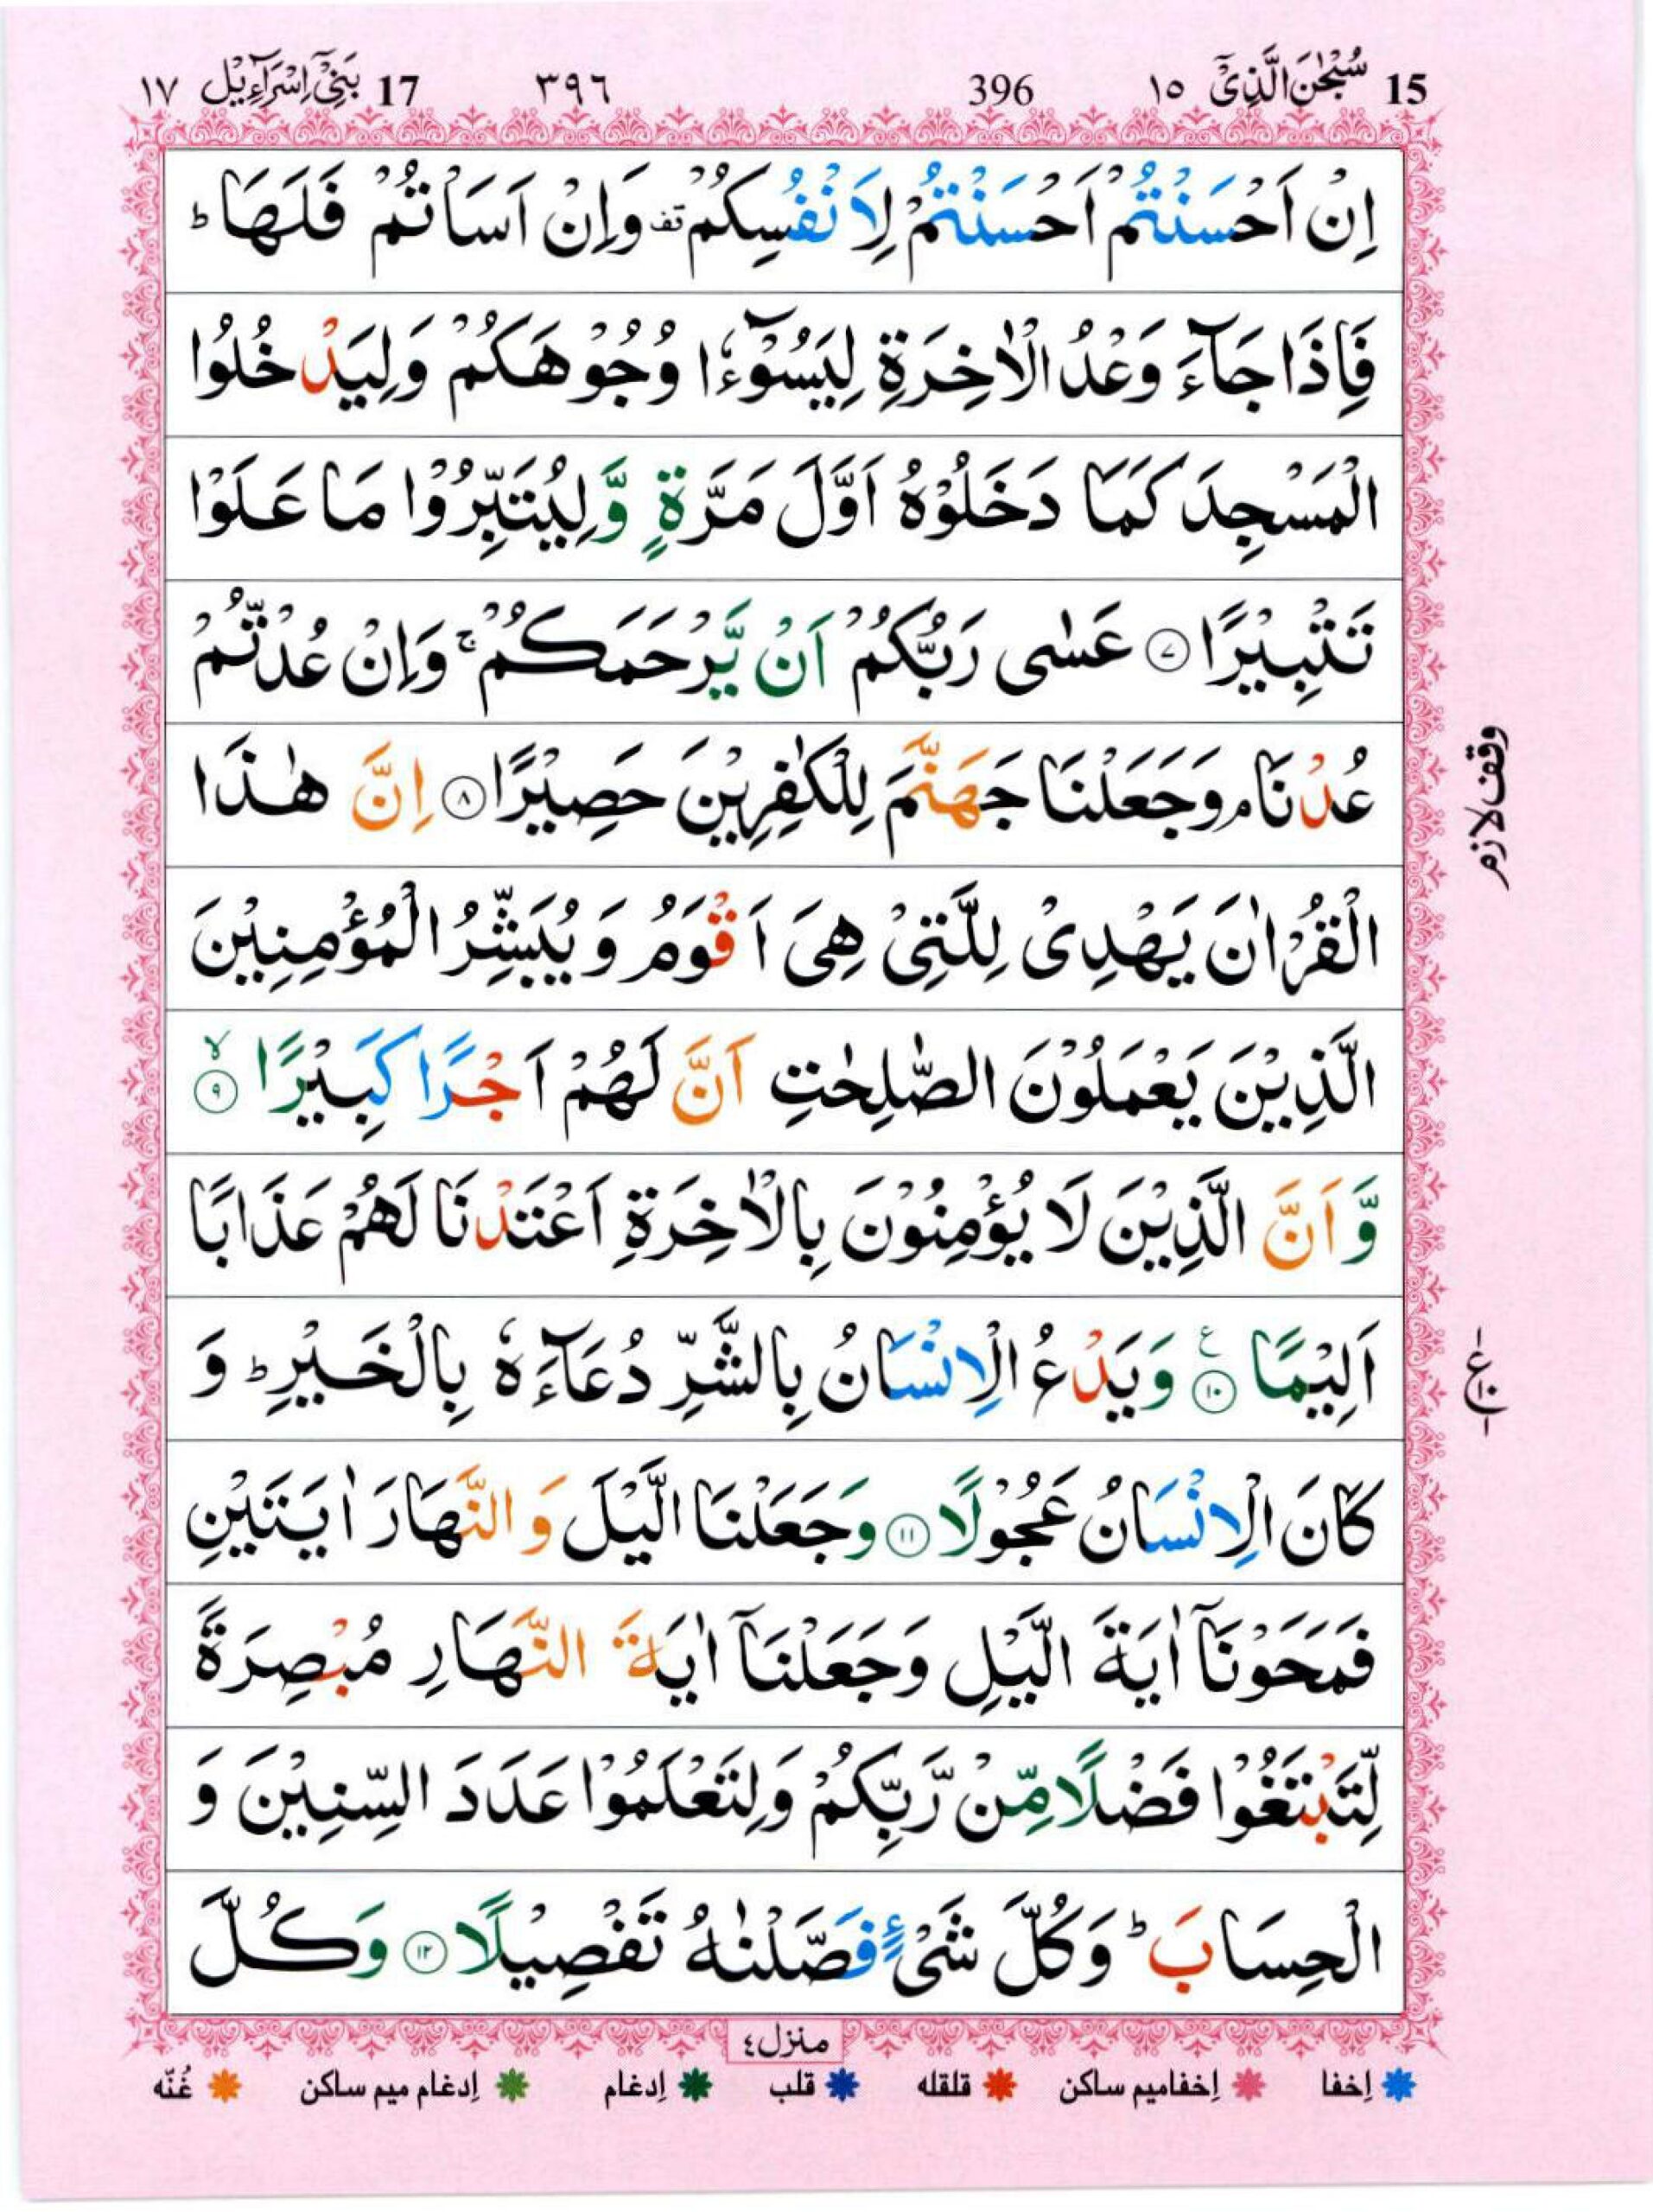 15 سُبْحٰنَ الَّذِیْۤ ١٥ 396 ٣٩٦ 17 بَنِیْۤ اِسْرَآءِیْل ١٧
اِنْ اَحْسَنْتُمْ اَحْسَنْتُمْ لِاَنْفُسِكُمْ ۫ قف وَاِنْ اَسَاْتُمْ فَلَهَا ؕ
فَاِذَا جَآءَ وَعْدُ الْاٰخِرَةِ لِیَسُوْٓءٗا وُجُوْهَكُمْ وَلِیَدْخُلُوا
الْمَسْجِدَ كَمَا دَخَلُوْهُ اَوَّلَ مَرَّةٍ وَّلِیُتَبِّرُوْا مَا عَلَوْا
تَتْبِیْرًا ۷ عَسٰی رَبُّكُمْ اَنْ یَّرْحَمَكُمْ ۚ وَاِنْ عُدْتُّمْ
عُدْنَا ۘ وَجَعَلْنَا جَهَنَّمَ لِلْكٰفِرِیْنَ حَصِیْرًا ۸ اِنَّ هٰذَا
الْقُرْاٰنَ یَهْدِیْ لِلَّتِیْ هِیَ اَقْوَمُ وَیُبَشِّرُ الْمُؤْمِنِیْنَ
الَّذِیْنَ یَعْمَلُوْنَ الصّٰلِحٰتِ اَنَّ لَهُمْ اَجْرًا كَبِیْرًا ۙ ۹
وَّاَنَّ الَّذِیْنَ لَا یُؤْمِنُوْنَ بِالْاٰخِرَةِ اَعْتَدْنَا لَهُمْ عَذَابًا
اَلِیْمًا ۱۰ ع وَیَدْعُ الْاِنْسَانُ بِالشَّرِّ دُعَآءَهٗ بِالْخَیْرِ ؕ وَ
كَانَ الْاِنْسَانُ عَجُوْلًا ۱۱ وَجَعَلْنَا الَّیْلَ وَالنَّهَارَ اٰیَتَیْنِ
فَمَحَوْنَاۤ اٰیَةَ الَّیْلِ وَجَعَلْنَاۤ اٰیَةَ النَّهَارِ مُبْصِرَةً
لِّتَبْتَغُوْا فَضْلًا مِّنْ رَّبِّكُمْ وَلِتَعْلَمُوْا عَدَدَ السِّنِیْنَ وَ
الْحِسَابَ ؕ وَكُلَّ شَیْءٍ فَصَّلْنٰهُ تَفْصِیْلًا ۱۲ وَكُلَّ
وقف لازم
منزل ٤
اِخفا اِخفامیم ساكن قلقله قلب اِدغام اِدغام میم ساكن غُنّه